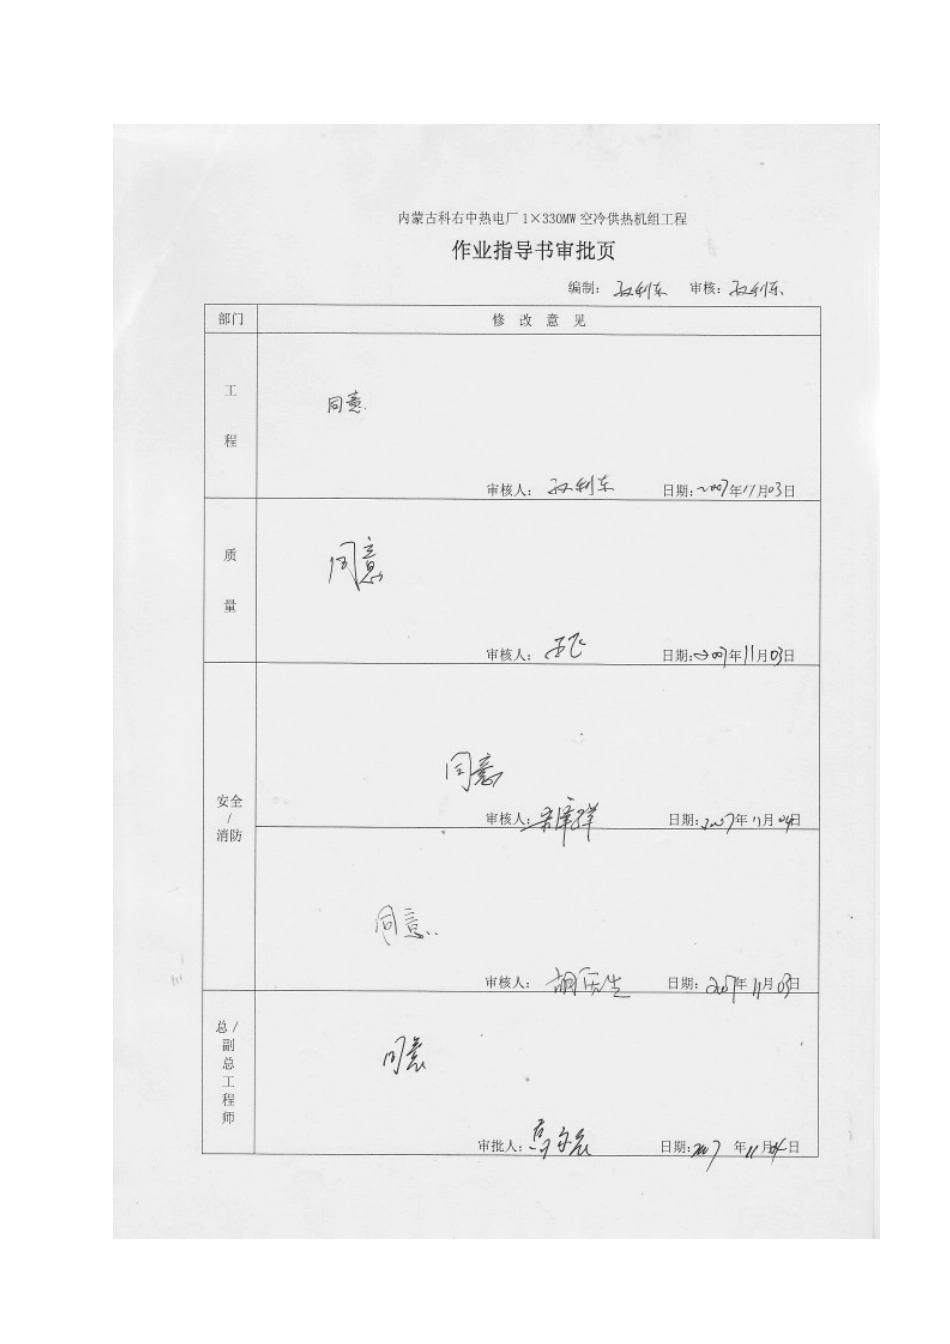 内蒙古科右中热电厂1×330MW空冷供热机组工程
作业指导书审批页
编制：孙利东 审核：孙利东
部门 修改意见
工程
同意.
审核人：孙利东 日期：2007年11月03日
质量
同意
审核人： 日期：2007年11月03日
安全/消防
同意
审核人： 日期：2007年11月04日
同意..
审核人：胡庆生 日期：2007年11月03日
总/副总工程师
同意
审批人： 日期：2007年11月04日